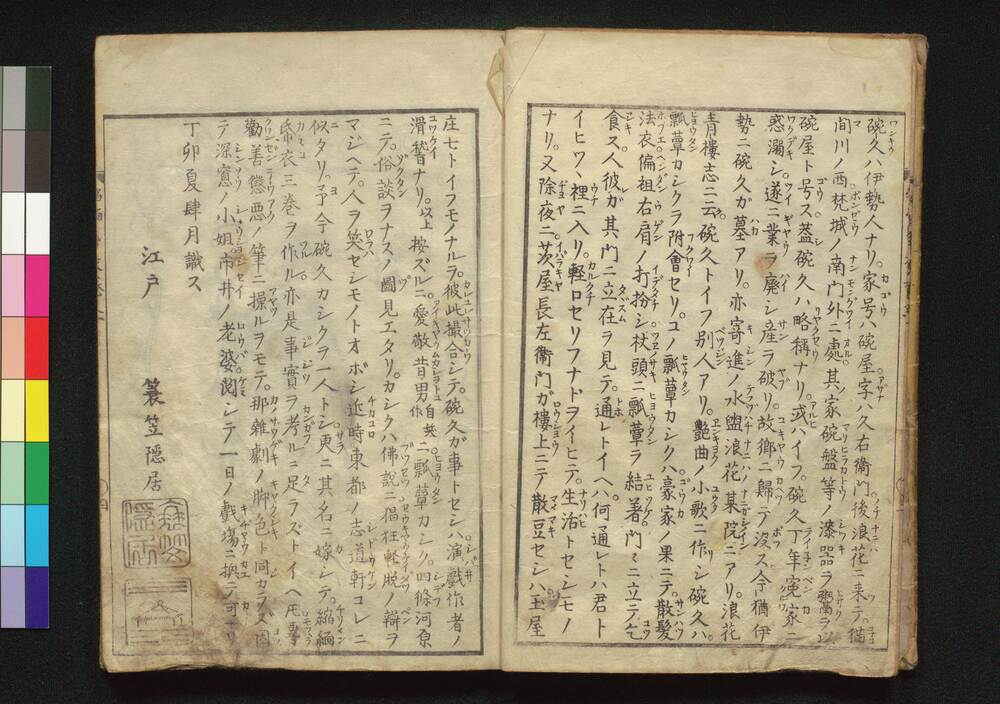 碗久ハ伊勢人ナリ。家号ハ碗屋字ハ久右衛門後浪花ニ来テ猫
間川ノ西梵城ノ南門外ニ處ル。其家碗盤等ノ漆器ヲ鬻ク。シ
碗屋ト号ス蓋碗久ハ略稱ナリ。或ハイフ。碗久丁年寃家ニ
惑溺シ。遂ニ業ヲ廃シ産ヲ破リ。故郷ニ歸テ没ス今猶伊
勢ニ碗久ガ墓アリ。亦寄進ノ水盥浪花某院ニアリ。浪花
青樓志ニ云。碗久トイフ別人アリ。艶曲ノ小歌ニ作シ碗久ハ
瓢蕈カシクヲ附會セリ。ユノ瓢蕈カシクハ豪家ノ果ニテ。散髪
法衣偏袒右肩ノ打扮シ杖頭ニ瓢蕈ヲ結著。門ニ立テ乞
食ス人彼ガ其門ニ立在ヲ見テ。通レトイヘハ何通レトハ君ト
イヒツヽ裡ニ入リ。軽口セリフナドヲイヒテ。生活トセシモノ
ナリ。又除夜ニ茨屋長左衛門ガ樓上ニテ散豆セシハ玉屋
庄七トイフモノナルヲ。彼此撮合シテ。碗久ガ事トセシハ演戯作者ノ
滑稽ナリ。以上 按ズルニ。愛敬昔男 自笑作 ニ瓢蕈カシク。四條河原
ニテ。俗談ヲナスノ圖見エタリ。カシクハ佛説ニ猖狂軽脱ノ辯ヲ
マジヘテ。人ヲ笑セシモノトオボシ近時東都ノ志道軒コレニ
似タリ。予今碗久カシクヲ一人トシ更ニ其名ニ嫁シテ。縮緬
帋衣三巻ヲ作ル亦是事實ヲ考ルニ足ラズトイヘ𪜈專
勸善懲悪ノ筆ニ操ルヲモテ。那雑劇ノ脚色ト同カラズ因
テ深窓ノ小姐市井ノ老婆閲シテ一日ノ戯場ニ換ニ可ナリ
丁卯夏肆月識ス
江戸 簑笠隠居
簑笠隠居